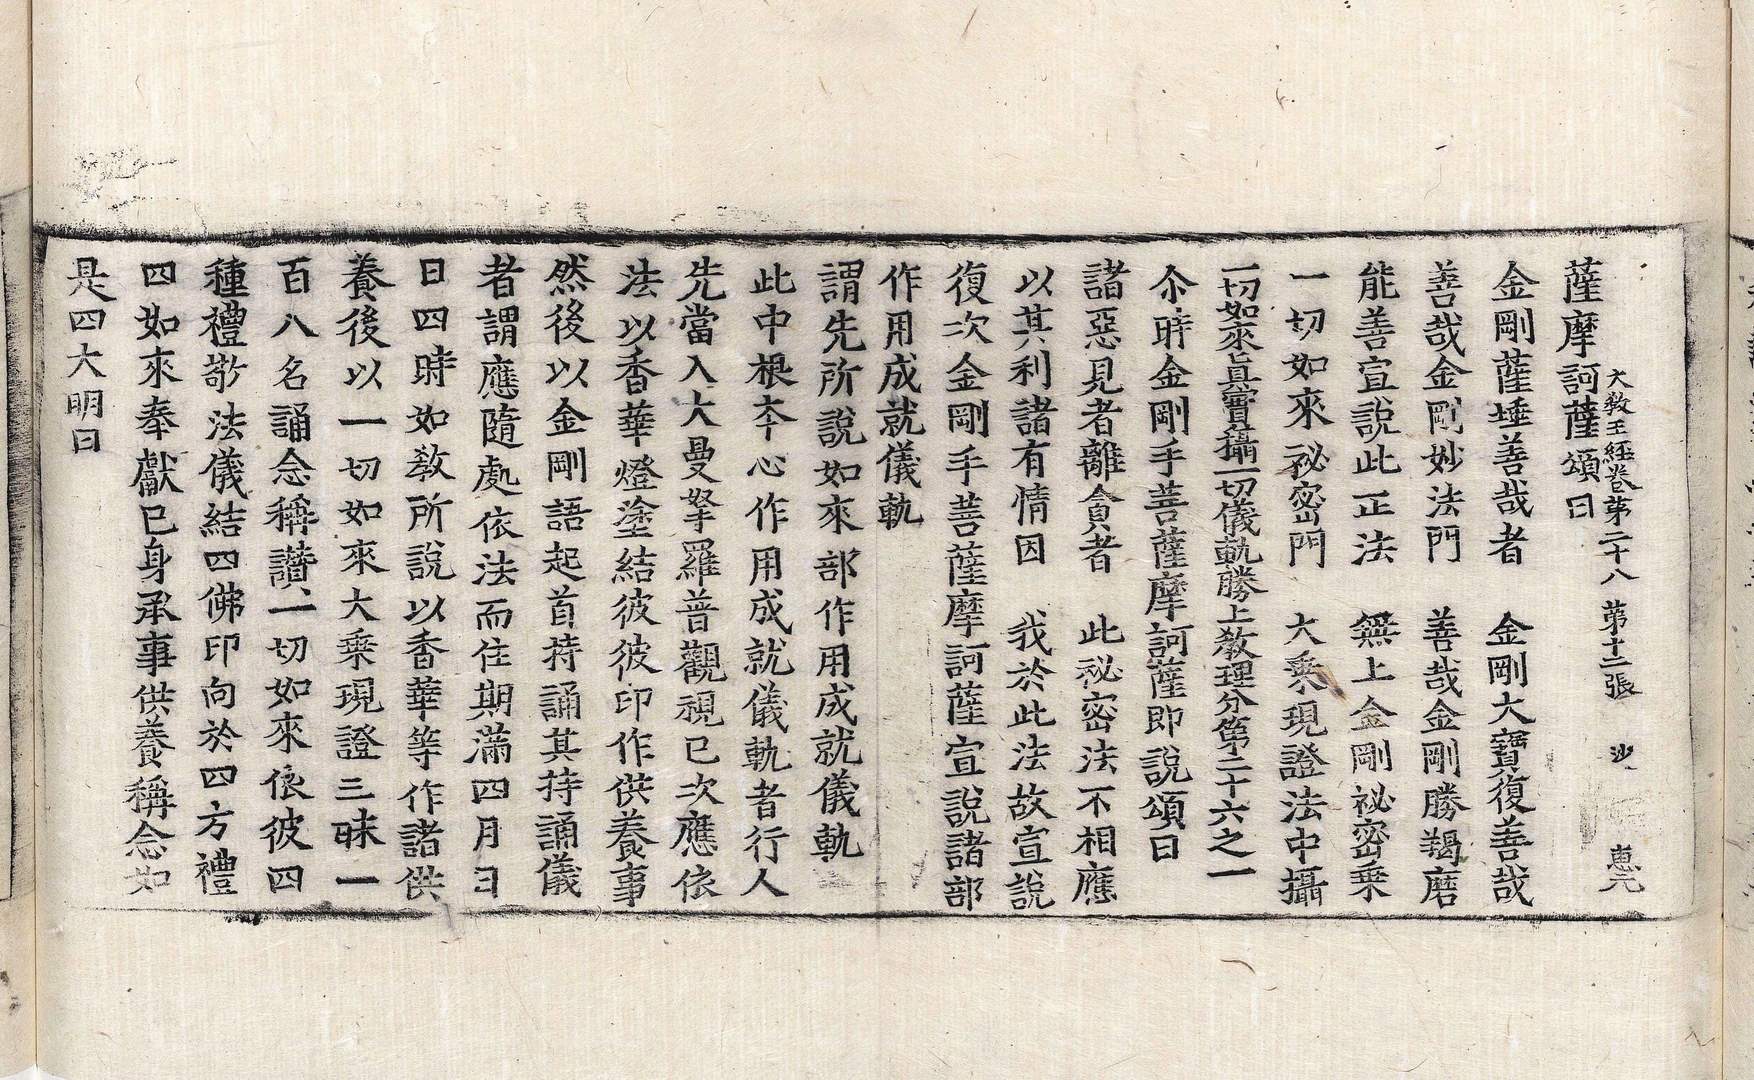 大教王經卷第二十八 第十二張 沙 惠元
薩摩訶薩頌曰
金剛薩埵善哉者 金剛大寶復善哉
善哉金剛妙法門 善哉金剛勝羯磨
能善宣說此正法 無上金剛祕密乗
一切如來祕密門 大乗現證法中攝
一切如來眞實攝一切儀軌勝上教理分第二十六之一
尒時金剛手菩薩摩訶薩即說頌曰
諸惡見者離貪者 此祕密法不相應
以其利諸有情因 我於此法故宣說
復次金剛手菩薩摩訶薩宣說諸部
作用成就儀軌
謂先所說如來部作用成就儀軌
此中根夲心作用成就儀軌者行人
先當入大曼拏羅普觀視已次應依
法以香華燈塗結彼彼印作供養事
然後以金剛語起首持誦其持誦儀
者謂應隨處依法而住期滿四月日
日四時如教所說以香華等作諸供
養後以一切如來大乗現證三昧一
百八名誦念稱讚一切如來依彼四
種禮敬法儀結四佛印向於四方禮
四如來奉獻已身承事供養稱念如
是四大明曰